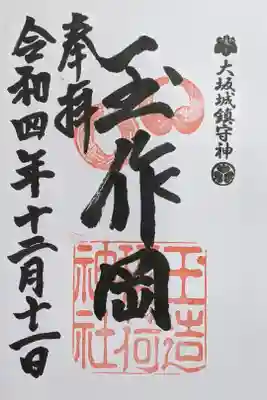 大坂城鎮守神
玉作岡
玉造稲荷神社
奉拝
令和四年十二月十一日